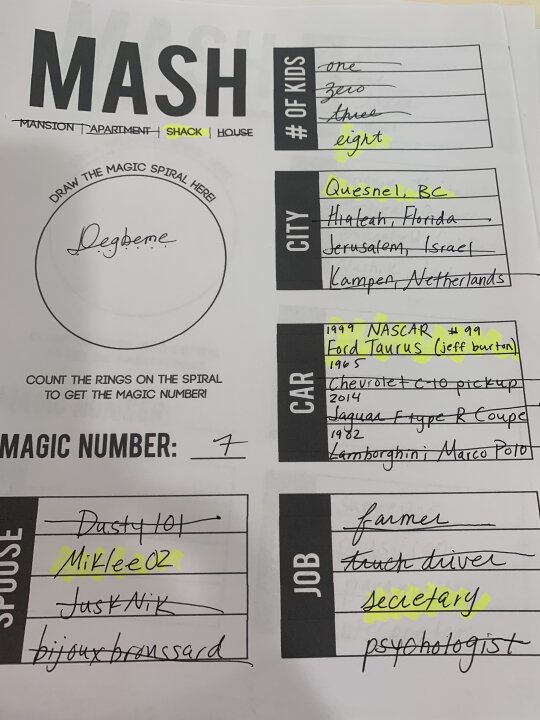 MASH
MANSION | APARTMENT | SHACK | HOUSE
DRAW THE MAGIC SPIRAL HERE!
Degbeme
COUNT THE RINGS ON THE SPIRAL
TO GET THE MAGIC NUMBER!
MAGIC NUMBER: 7
# OF KIDS
one
zero
three
eight
CITY
Quesnel, BC
Hialeah, Florida
Jerusalem, Israel
Kampen, Netherlands
CAR
1999 NASCAR #99
Ford Taurus (jeff burton)
1965
Chevrolet C-10 pickup
2014
Jaguar F type R Coupe
1982
Lamborghini Marco Polo
SPOUSE
Dusty 101
Miklee02
JuskNik
bijoux broussard
JOB
farmer
truck driver
secretary
psychologist